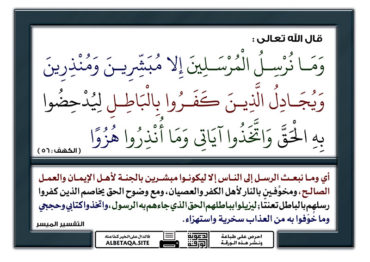 قال الله تعالى :
وَمَا نُرْسِلُ الْمُرْسَلِينَ إِلَّا مُبَشِّرِينَ وَمُنْذِرِينَ
وَيُجَادِلُ الَّذِينَ كَفَرُوا بِالْبَاطِلِ لِيُدْحِضُوا
بِهِ الْحَقَّ وَاتَّخَذُوا آيَاتِي وَمَا أُنْذِرُوا هُزُوًا
( الكهف : ٥٦ )
أي وما نبعث الرسل إلى الناس إلا ليكونوا مبشرين بالجنة لأهل الإيمان والعمل
الصالح، ومخوِّفين بالنار لأهل الكفر والعصيان، ومع وضوح الحق يخاصم الذين كفروا
رسلهم بالباطل تعنتا؛ ليزيلوا بباطلهم الحق الذي جاءهم به الرسول، واتخذوا كتابي وحججي
وما خُوّفوا به من العذاب سخرية واستهزاء.
التفسير الميسر
احرص على طباعة
ونشر هذه الورقة
فالدال على الخير كفاعله
ALBETAQA.SITE